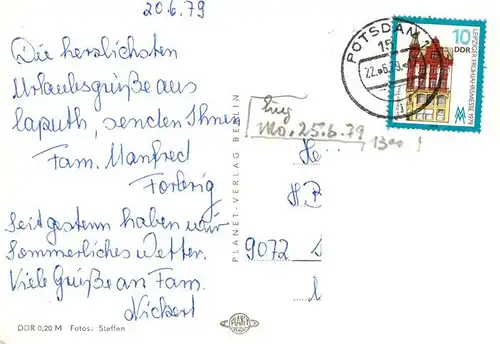 20.6.79
Die herzlichsten
Urlaubsgrüße aus
Caputh, senden Ihnen
Fam. Manfred
Forbrig
Seit gestern haben wir
Sommerliches Wetter.
Viele Grüße an Fam.
Nickert
DDR 0,20 M Fotos: Steffen
PLANET-VERLAG BERLIN
PLANET
POTSDAM
15
22.6.79
10
DDR
LEIPZIGER FRÜHJAHRSMESSE 1979
MM
Eing
Mo. 25.6.79
13 00 !
9072